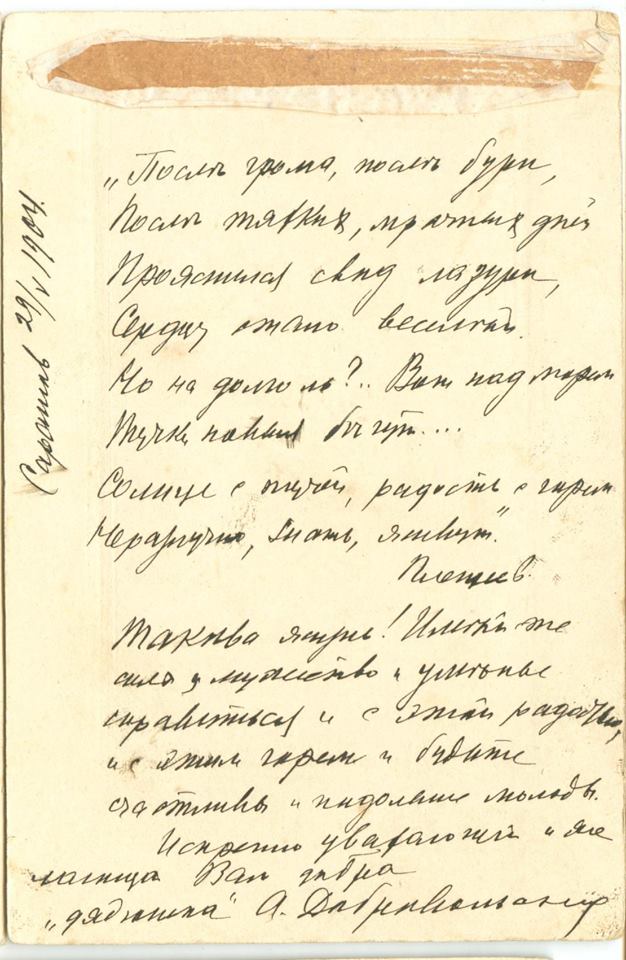 „Послѣ грома, послѣ бури,
Послѣ тяжкихъ, мрачныхъ дней
Прояснился сводъ лазури,
Сердцу стало веселѣй.
Но на долго ль?.. Вотъ надъ моремъ
Тучки новыя бѣгутъ....
Солнце с тучей, радость с горемъ
Неразлучно, знать, живутъ."
Плещеевъ.
Такова жизнь! Имейте же
силы и мужество и умѣнье
справиться и с этой радостью,
и с этимъ горемъ и будьте
счастливы и подольше молоды.
Искренно уважающій и же
лающій Вам добра
„дядюшка" А. Добровольскій
Саратовъ 29/V 1904.